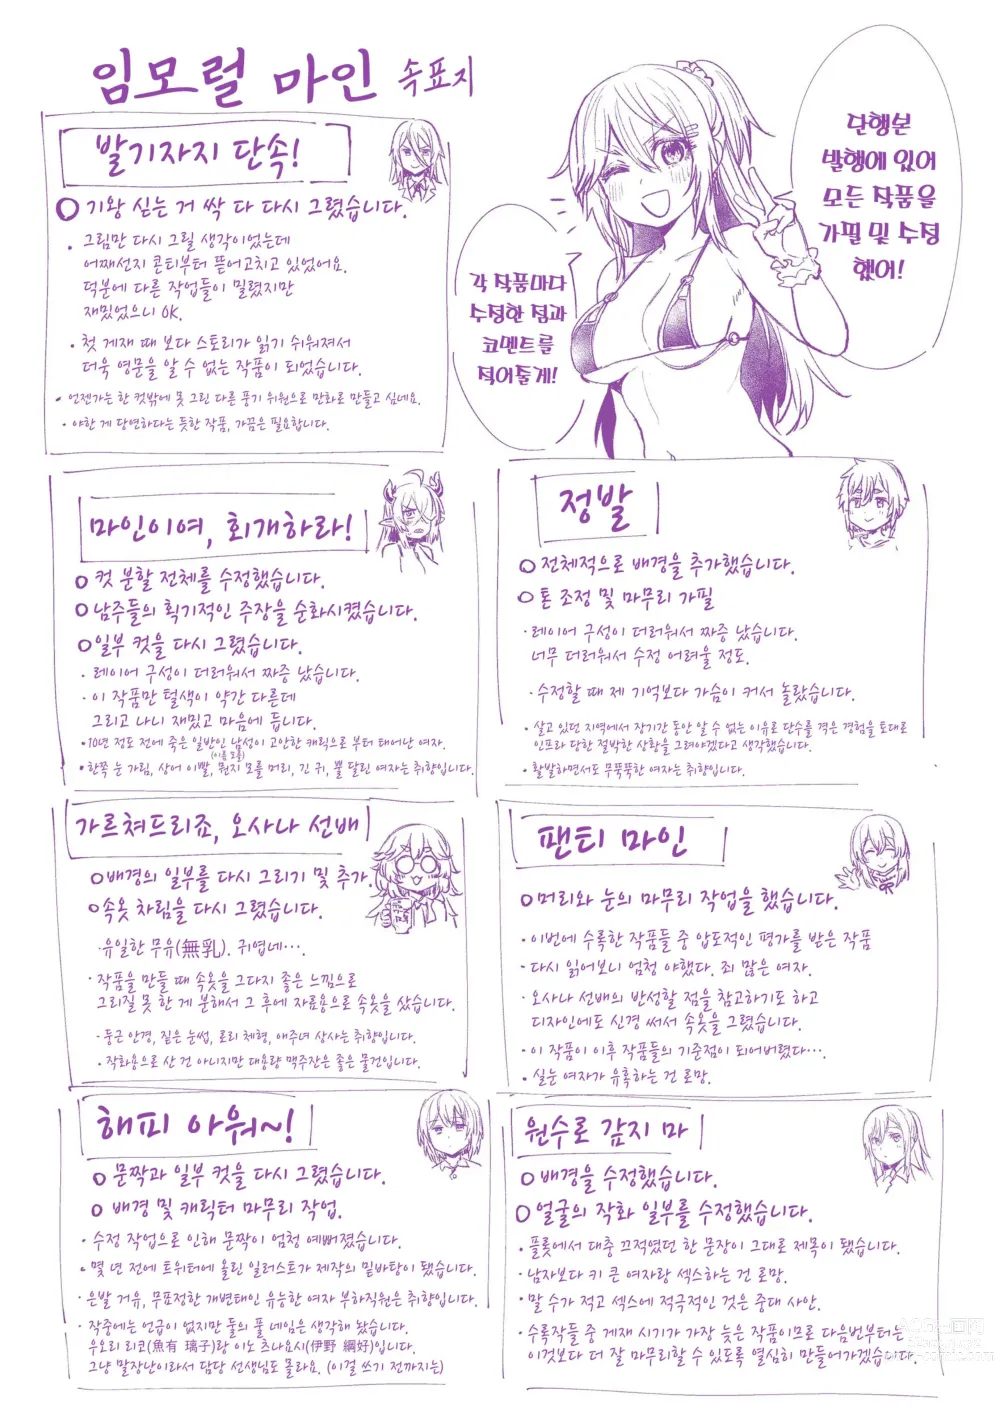 임모럴 마인 속표지
단행본
발행에 있어
모든 작품을
가필 및 수정
했어!
각 작품마다
수정한 점과
코멘트를
적어둘게!
발기자지 단속!
기왕 싣는 거 싹 다 다시 그렸습니다.
• 그림만 다시 그릴 생각이었는데
어째선지 콘티부터 뜯어고치고 있었어요.
덕분에 다른 작업들이 밀렸지만
재밌었으니 OK.
• 첫 게재 때 보다 스토리가 읽기 쉬워져서
더욱 영문을 알 수 없는 작품이 되었습니다.
• 언젠가는 한 컷밖에 못 그린 다른 풍기 위원으로 만화로 만들고 싶네요.
• 야한 게 당연하다는 듯한 작품, 가끔은 필요합니다.
마인이여, 회개하라!
○ 컷 분할 전체를 수정했습니다.
○ 남주들의 획기적인 주장을 순화시켰습니다.
○ 일부 컷을 다시 그렸습니다.
• 레이어 구성이 더러워서 짜증 났습니다.
• 이 작품만 털색이 약간 다른데
그리고 나니 재밌고 마음에 듭니다.
• 10년 정도 전에 죽은 일반인 남성이 고안한 캐릭으로 부터 태어난 여자.
(이름 모를)
• 한쪽 눈 가림, 상어 이빨, 뭔지 모를 머리, 긴 귀, 뿔 달린 여자는 취향입니다.
정발
○ 전체적으로 배경을 추가했습니다.
○ 톤 조정 및 마무리 가필
• 레이어 구성이 더러워서 짜증 났습니다.
너무 더러워서 수정 어려울 정도.
• 수정할 때 제 기억보다 가슴이 커서 놀랐습니다.
• 살고 있던 지역에서 장기간 동안 알 수 없는 이유로 단수를 겪은 경험을 토대로
인프라 단한 절박한 상황을 그려야겠다고 생각했습니다.
• 활발하면서도 무뚝뚝한 여자는 취향입니다.
가르쳐드리죠, 오사나 선배
○ 배경의 일부를 다시 그리기 및 추가.
○ 속옷 차림을 다시 그렸습니다.
• 유일한 무유(無乳). 귀엽네….
• 작품을 만들 때 속옷을 그다지 좋은 느낌으로
그리질 못 한 게 분해서 그 후에 자료용으로 속옷을 샀습니다.
• 둥근 안경, 짙은 눈썹, 로리 체형, 애주녀 상사는 취향입니다.
• 작화용으로 산 건 아니지만 대용량 맥주잔은 좋은 물건입니다.
팬티 마인
○ 머리와 눈의 마무리 작업을 했습니다.
• 이번에 수록한 작품들 중 압도적인 평가를 받은 작품
• 다시 읽어보니 엄청 야했다. 죄 많은 여자.
• 오사나 선배의 반성할 점을 참고하기도 하고
디자인에도 신경 써서 속옷을 그렸습니다.
• 이 작품이 이후 작품들의 기준점이 되어버렸다….
• 실눈 여자가 유혹하는 건 로망.
해피 아워~!
○ 문짝과 일부 컷을 다시 그렸습니다.
○ 배경 및 캐릭터 마무리 작업.
• 수정 작업으로 인해 문짝이 엄청 예뻐졌습니다.
• 몇 년 전에 트위터에 올린 일러스트가 제작의 밑바탕이 됐습니다.
• 은발 거유, 무표정한 개변태인 유능한 여자 부하직원은 취향입니다.
• 작중에는 언급이 없지만 둘의 풀 네임은 생각해 놨습니다.
우오리 리코(魚有 璃子)랑 이노 츠나요시(伊野 綱好)입니다.
그냥 말장난이라서 담당 선생님도 몰라요. (이걸 쓰기 전까지는)
원수로 감지 마
○ 배경을 수정했습니다.
○ 얼굴의 작화 일부를 수정했습니다.
• 플롯에서 대충 끄적였던 한 문장이 그대로 제목이 됐습니다.
• 남자보다 키 큰 여자랑 섹스하는 건 로망.
• 말 수가 적고 섹스에 적극적인 것은 중대 사안.
• 수록작들 중 게재 시기가 가장 늦은 작품이므로 다음번부터는
이것보다 더 잘 마무리할 수 있도록 열심히 만들어가겠습니다.